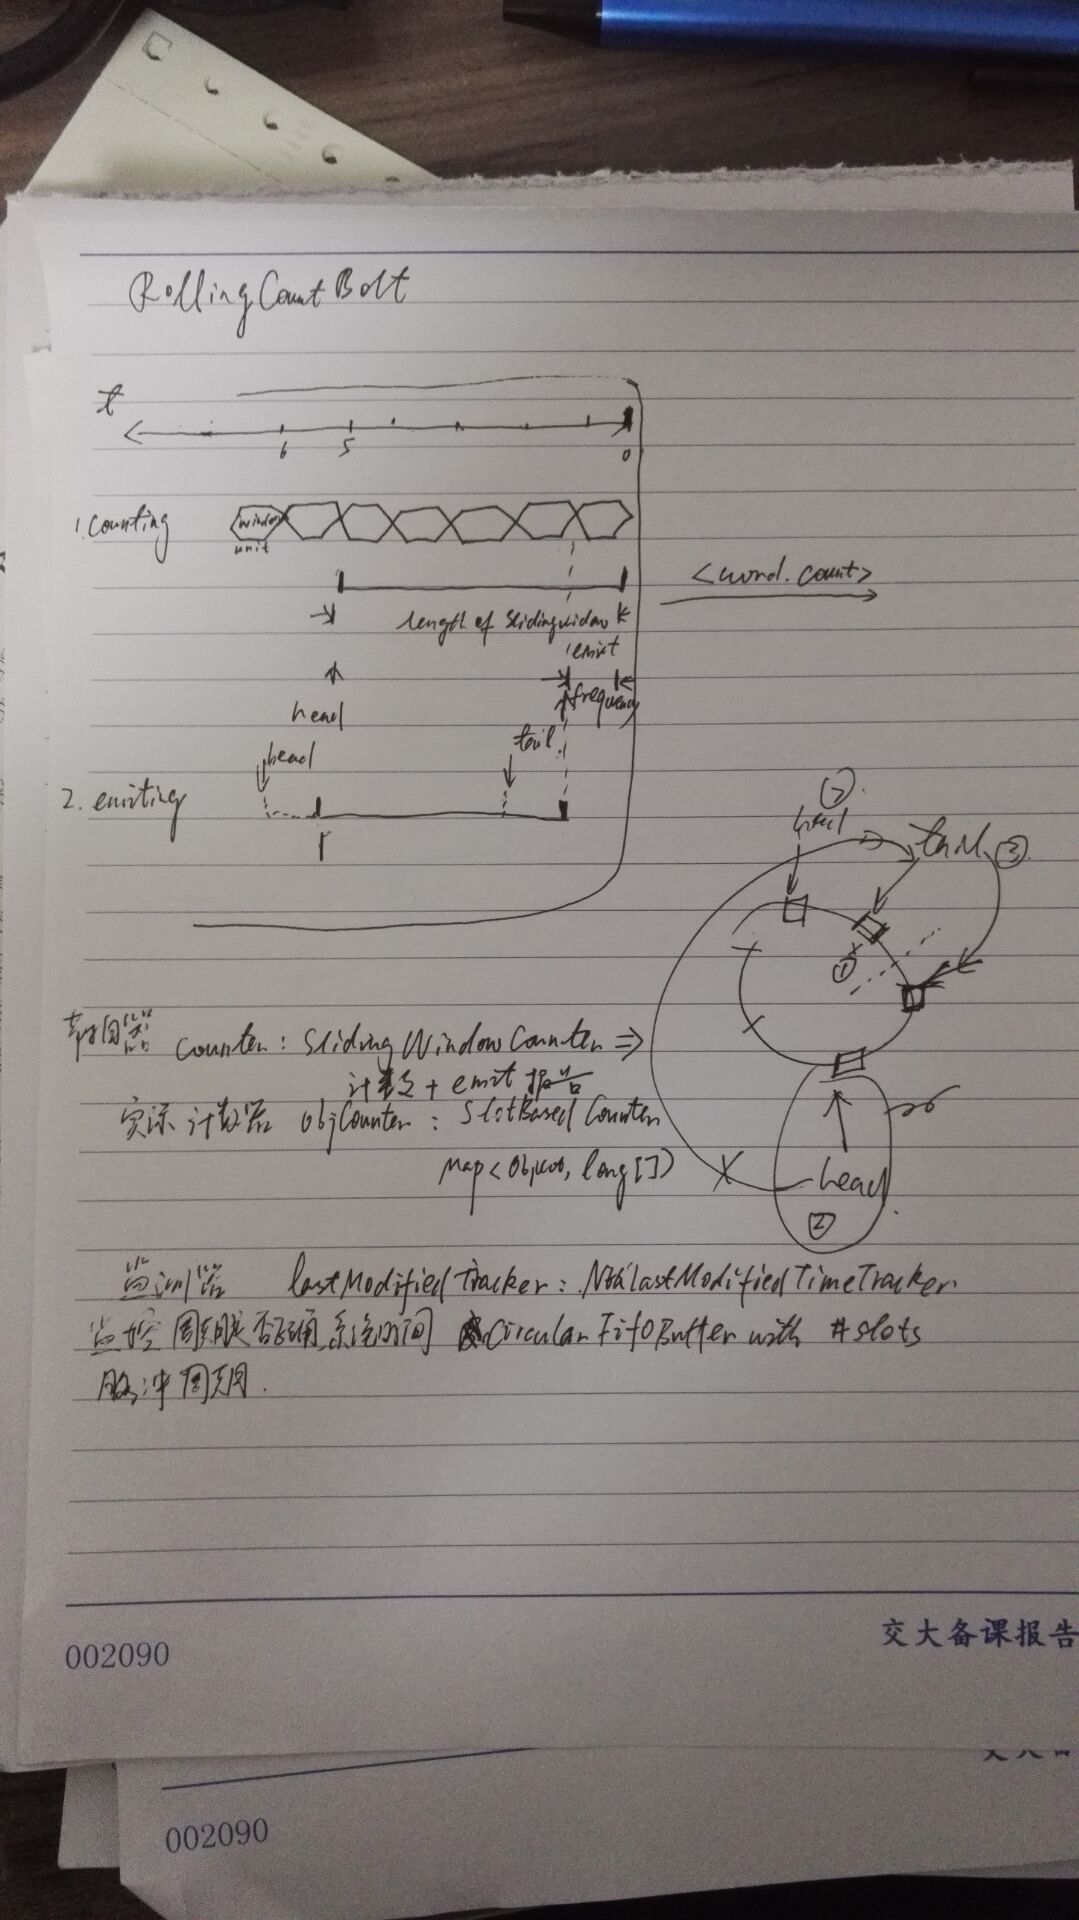 RollingCountBolt
t
6 5 0
1. Counting
window
unit
<word. count>
length of slidingwidow
emit
frequency
head
head
tail
2. emitting
②
head
tail ③
①
counter: SlidingWindowCounter ⇒
计数 + emit 报告
实际计数器 objCounter: SlotBasedCounter
Map<Object, long[]>
head
②
监测器 lastModifiedTracker: NthLastModifiedTimeTracker
监控周期是否正确 系统时间 CircularFifoBuffer with #slots
脉冲周期.
002090
交大备课报告
002090